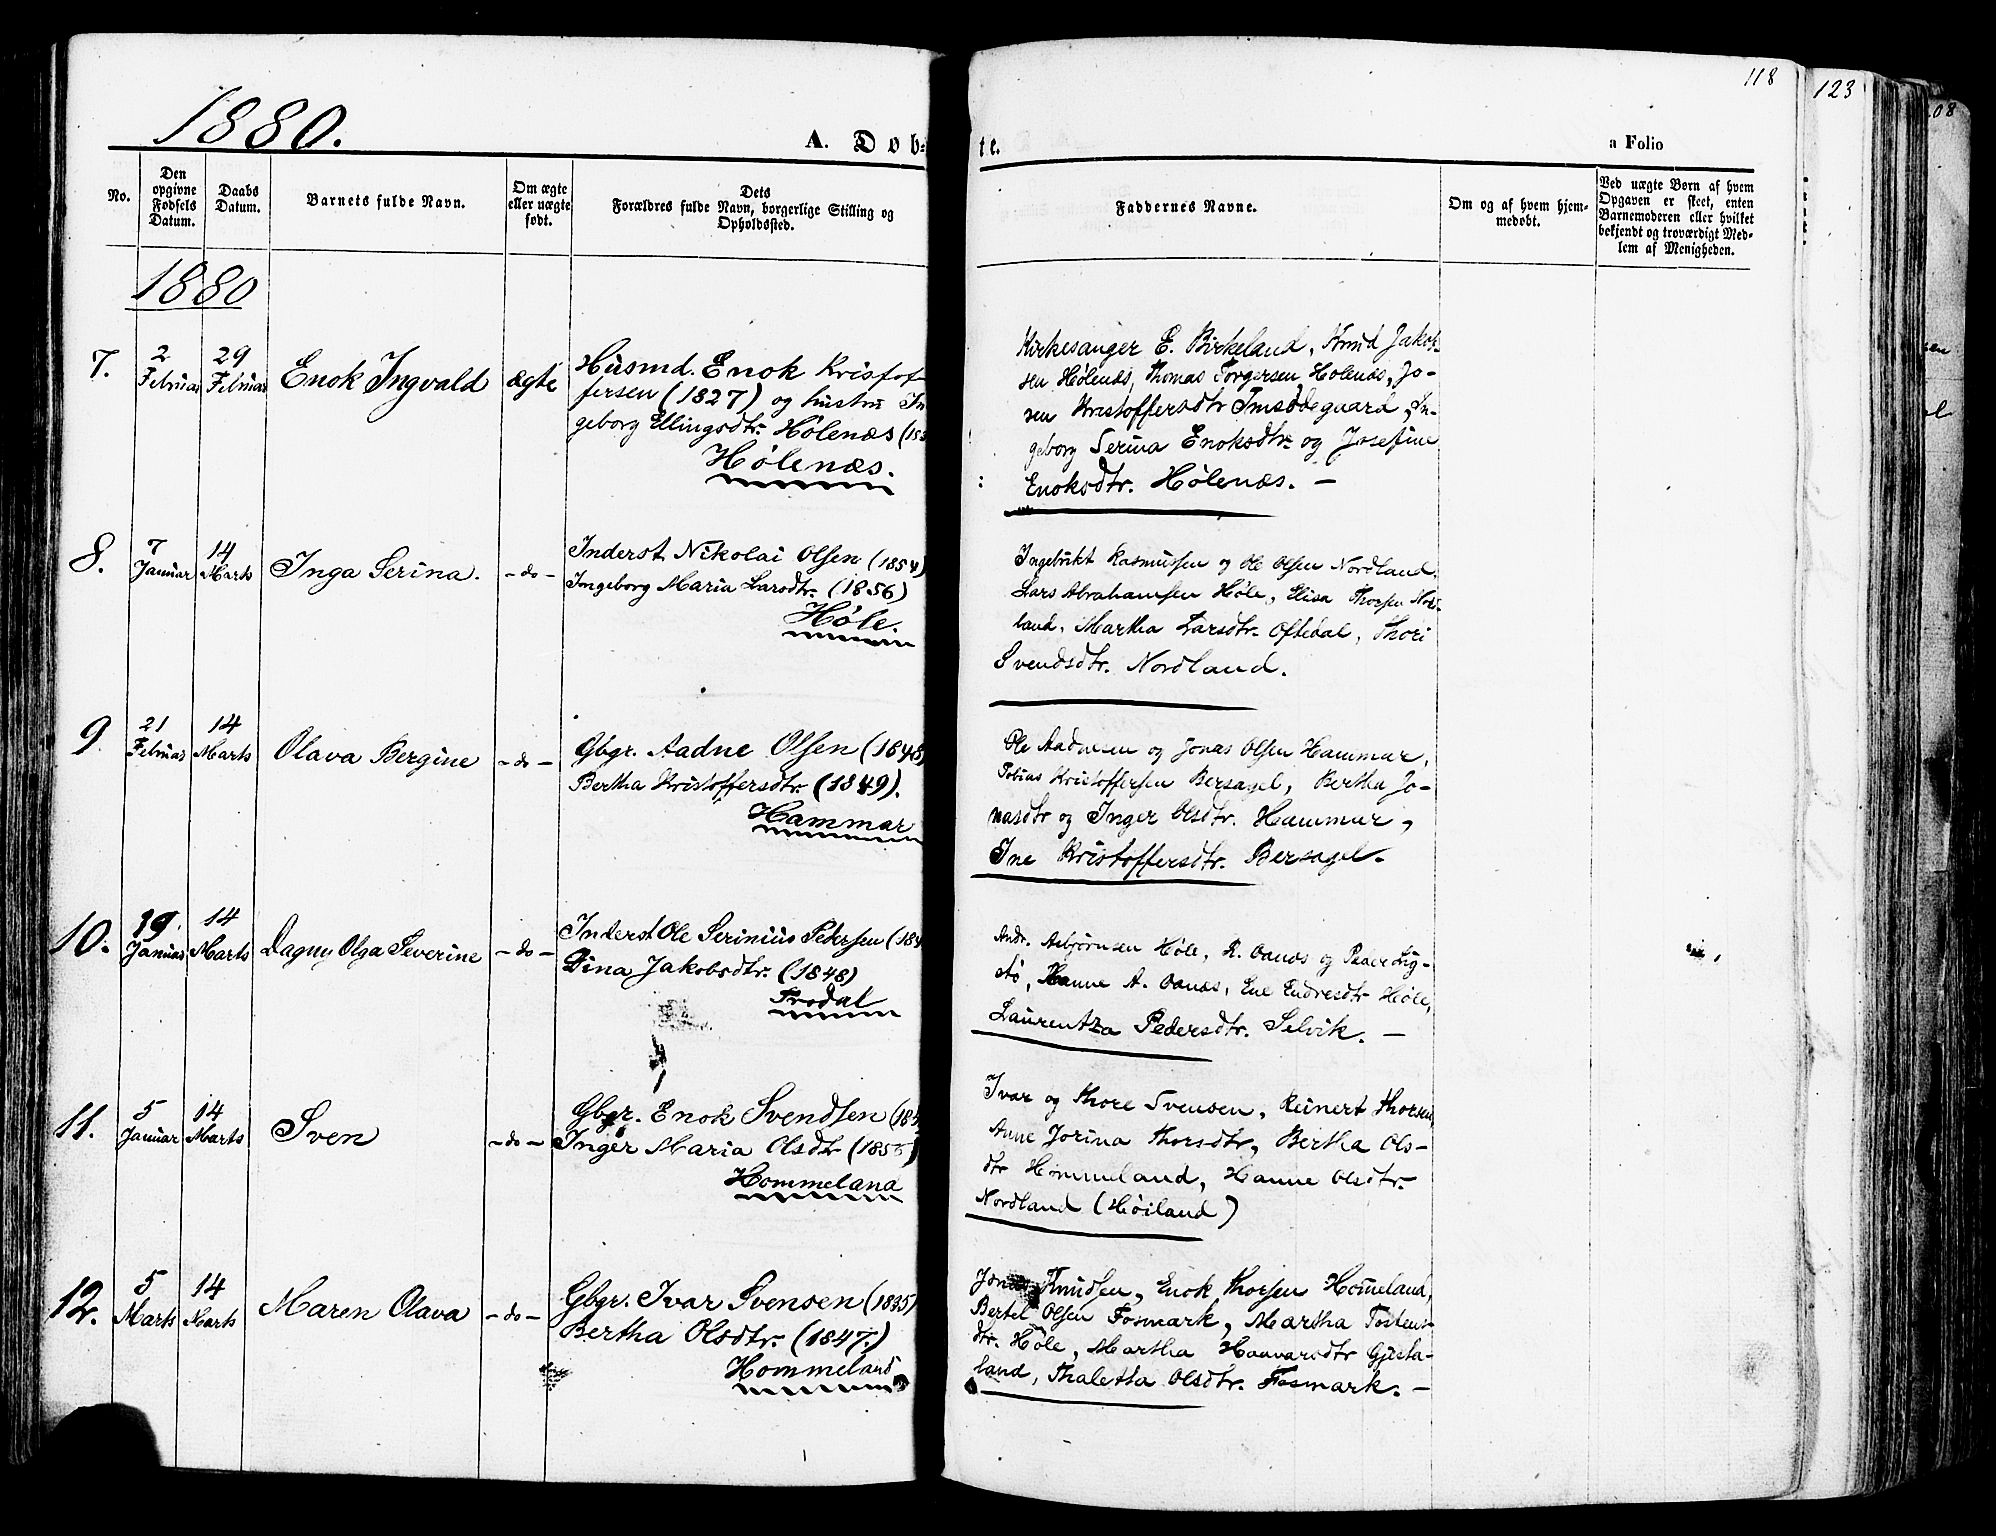 118
123
08
1880.
A. Døb-
te.
a Folio
No.
Den opgivne Fødsels Datum.
Daabs Datum.
Barnets fulde Navn.
Om ægte eller uægte født.
Dets
Forældres fulde Navn, borgerlige Stilling og
Opholdssted.
Faddernes Navne.
Om og af hvem hjem-
medøbt.
Ved uægte Børn af hvem
Opgaven er skeet, enten
Barnemoderen eller hvilket
bekjendt og troværdigt Med-
lem af Menigheden.
1880
7.
2 Februar
29 Februar
Enok Ingvald
ægte
Husmd. Enok Kristof-
fersen (1827) og hustru In
geborg Ellingsdtr. Hølenæs
Hølenæs.
Kirkesanger E. Birkeland, Knud Jakob-
sen Hølenæs, Thomas Torgersen Holenæs, Jo-
sen Kristoffersdtr Imsødegaard, In-
geborg Serina Enoksdtr. og Josefine
Enoksdtr. Hølenæs. -
8.
7 Januar
14 Marts
Inga Serina.
- do -
Inderst Nikolai Olsen (1854)
Ingeborg Maria Larsdtr. (1856)
Høle.
Ingebrikt Rasmussen og Ole Olsen Nordland,
Lars Abrahamsen Høle, Elisa Thorsen Nord-
land, Martha Larsdtr. Oftedal, Thori
Svendsdtr. Nordland.
9.
21 Februar
14 Marts
Olava Bergine
- do -
Gbgr. Aadne Olsen (1848)
Bertha Kristoffersdtr. (1849).
Hammar
Ole Aadnesen og Jonas Olsen Hammar,
Tobias Kristoffersen Bersagel, Bertha Jo-
nasdtr og Inger Olsdtr. Hammar,
Ine Kristoffersdtr. Bersagel.
10.
19. Januar
14 Marts
Dagny Olga Severine
- do -
Inderst Ole Serinius Petersen (184
Dina Jakobsdtr. (1848)
Frodal
Andr. Asbjørnsen Høle, R. Oanæs og Peder Lig-
, Hanne A. Oanæs, Ene Endresdtr Høle,
Laurentza Pedersdtr. Selvik. -
11.
5 Januar
14 Marts
Sven
- do -
Gbgr. Enok Svendsen (184
Inger Maria Olsdtr (185
Hommeland
Ivar og Thore Svensen, Reinert Thorsen,
Anne Jorina Thorsdtr, Bertha Ols-
dtr Hommeland, Hanne Olsdtr.
Nordland (Høiland)
12.
5 Marts
14 Marts
Maren Olava
- do -
Gbgr. Ivar Svensen (1835)
Bertha Olsdtr. (1847.)
Hommeland
Knudsen, Enok Thorsen Hommeland,
Bertel Olsen Fosmark, Martha Tostens-
dtr. Høle, Martha Haavarsdtr Gjesta-
land, Thaletta Olsdtr. Fosmark. -